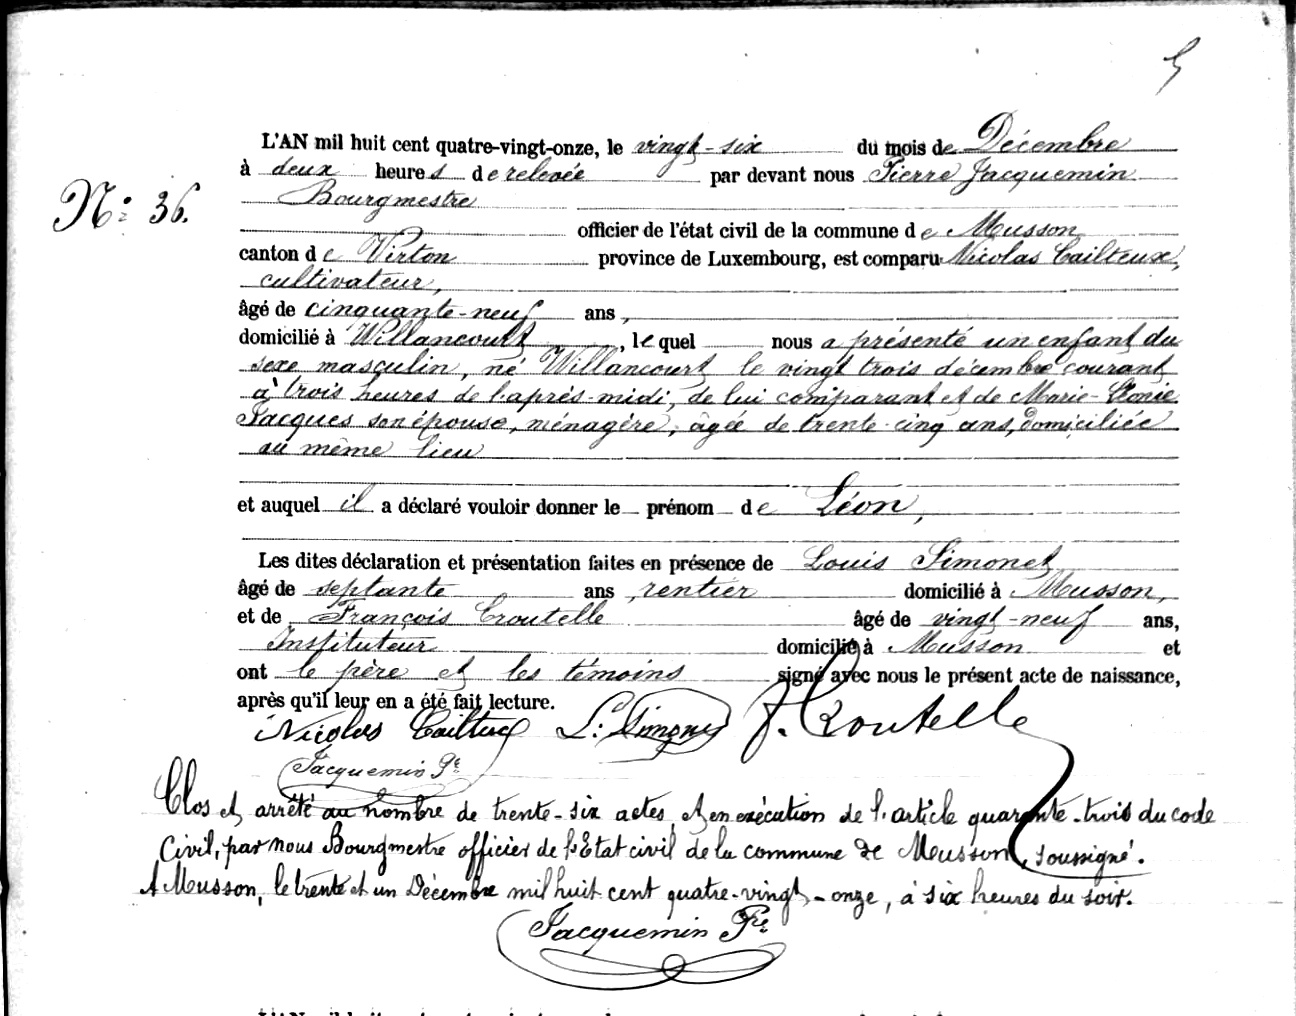 5
L'AN mil huit cent quatre-vingt-onze, le vingt-six du mois de Décembre
à deux heures de relevée par devant nous Pierre Jacquemin
Nº 36.
Bourgmestre
officier de l'état civil de la commune de Musson
canton de Virton province de Luxembourg, est comparu Nicolas Cailteux,
cultivateur,
âgé de cinquante-neuf ans,
domicilié à Willancourt, lequel nous a présenté un enfant du
sexe masculin, né Willancourt le vingt trois décembre courant
à trois heures de l'après-midi, de lui comparant et de Marie-Léonie
Jacques son épouse, ménagère, âgée de trente-cinq ans, domiciliée
au même lieu
et auquel il a déclaré vouloir donner le prénom de Léon,
Les dites déclaration et présentation faites en présence de Louis Simonet
âgé de septante ans, rentier domicilié à Musson,
et de François Croutelle âgé de vingt-neuf ans,
Instituteur domicilié à Musson et
ont le père et les témoins signé avec nous le présent acte de naissance,
après qu'il leur en a été fait lecture.
Nicolas Cailteux L. Simonet f. Croutelle
Jacquemin Pre
Clos et arrêté au nombre de trente-six actes, et en exécution de l'article quarante-trois du code
Civil, par nous Bourgmestre officier de l'Etat civil de la commune de Musson, soussigné.
A Musson, le trente et un Décembre mil huit cent quatre-vingt-onze, à six heures du soir.
Jacquemin Pre